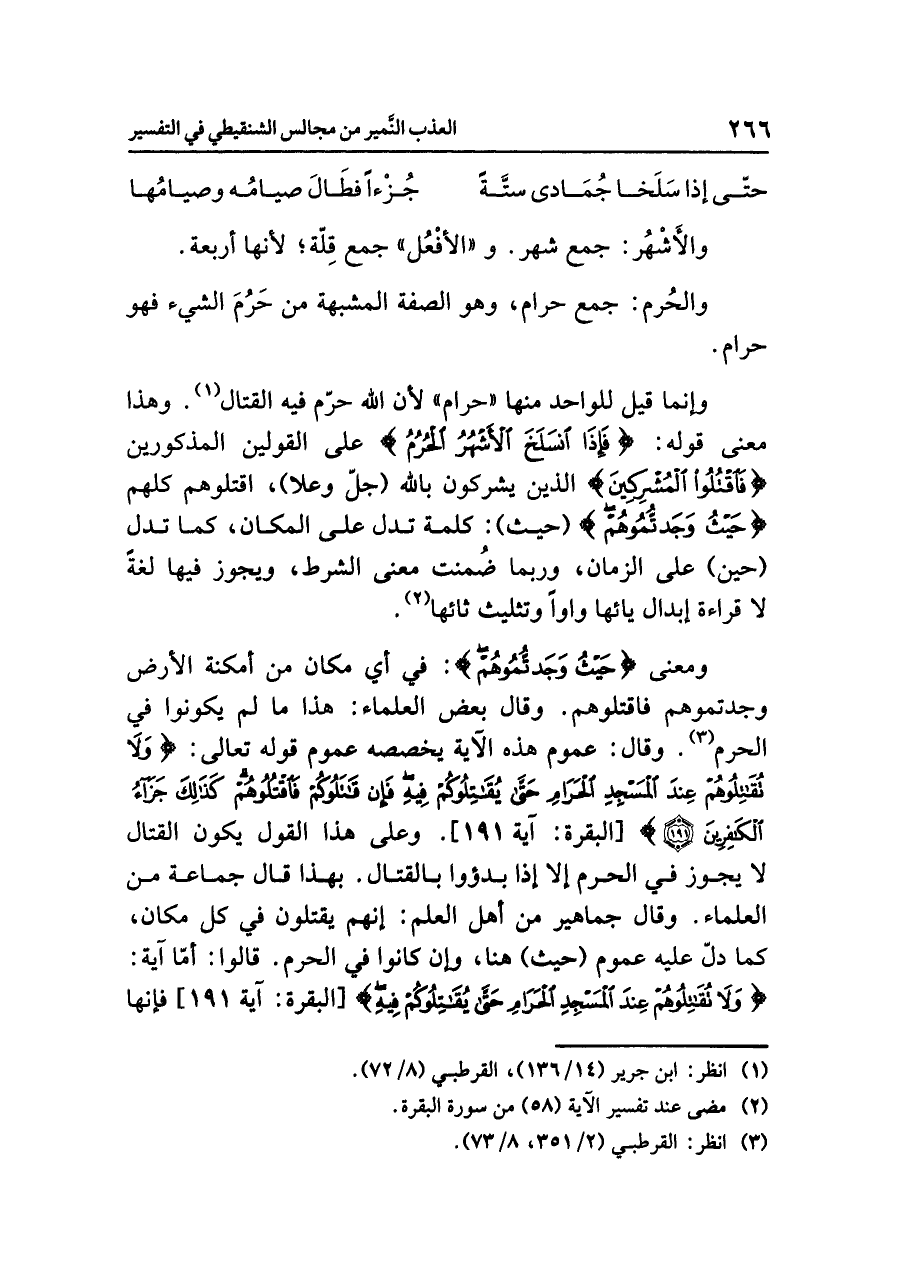 ٢٦٦ العذب النَّمير من مجالس الشنقيطي في التفسير
حتّى إذا سَلَخا جُمَادى ستَّةً جُزْءاً فطَالَ صيامُه وصيامُها
والأَشْهُر: جمع شهر. و «الأفْعُل» جمع قِلّة؛ لأنها أربعة.
والحُرم: جمع حرام، وهو الصفة المشبهة من حَرُمَ الشيء فهو
حرام.
وإنما قيل للواحد منها «حرام» لأن الله حرّم فيه القتال(١). وهذا
معنى قوله: ﴿ فَإِذَا ٱنسَلَخَ ٱلْأَشْهُرُ ٱلْحُرُمُ ﴾ على القولين المذكورين
﴿فَٱقْتُلُوا۟ ٱلْمُشْرِكِينَ﴾ الذين يشركون بالله (جلّ وعلا)، اقتلوهم كلهم
﴿حَيْثُ وَجَدتُّمُوهُمْ ۖ﴾ (حيث): كلمة تدل على المكان، كما تدل
(حين) على الزمان، وربما ضُمنت معنى الشرط، ويجوز فيها لغةً
لا قراءة إبدال يائها واواً وتثليث ثائها(٢).
ومعنى ﴿حَيْثُ وَجَدتُّمُوهُمْ ۖ﴾: في أي مكان من أمكنة الأرض
وجدتموهم فاقتلوهم. وقال بعض العلماء: هذا ما لم يكونوا في
الحرم(٣). وقال: عموم هذه الآية يخصصه عموم قوله تعالى: ﴿ وَلَا
تُقَٰتِلُوهُمْ عِندَ ٱلْمَسْجِدِ ٱلْحَرَامِ حَتَّىٰ يُقَٰتِلُوكُمْ فِيهِ ۖ فَإِن قَٰتَلُوكُمْ فَٱقْتُلُوهُمْ ۗ كَذَٰلِكَ جَزَآءُ
ٱلْكَٰفِرِينَ ١٩١ ﴾ [البقرة: آية ١٩١]. وعلى هذا القول يكون القتال
لا يجوز في الحرم إلا إذا بدؤوا بالقتال. بهذا قال جماعة من
العلماء. وقال جماهير من أهل العلم: إنهم يقتلون في كل مكان،
كما دلّ عليه عموم (حيث) هنا، وإن كانوا في الحرم. قالوا: أمّا آية:
﴿ وَلَا تُقَٰتِلُوهُمْ عِندَ ٱلْمَسْجِدِ ٱلْحَرَامِ حَتَّىٰ يُقَٰتِلُوكُمْ فِيهِ ۖ﴾ [البقرة: آية ١٩١] فإنها
(١) انظر: ابن جرير (١٤/ ١٣٦)، القرطبي (٨/ ٧٢).
(٢) مضى عند تفسير الآية (٥٨) من سورة البقرة.
(٣) انظر: القرطبي (٢/ ٣٥١، ٨/ ٧٣).